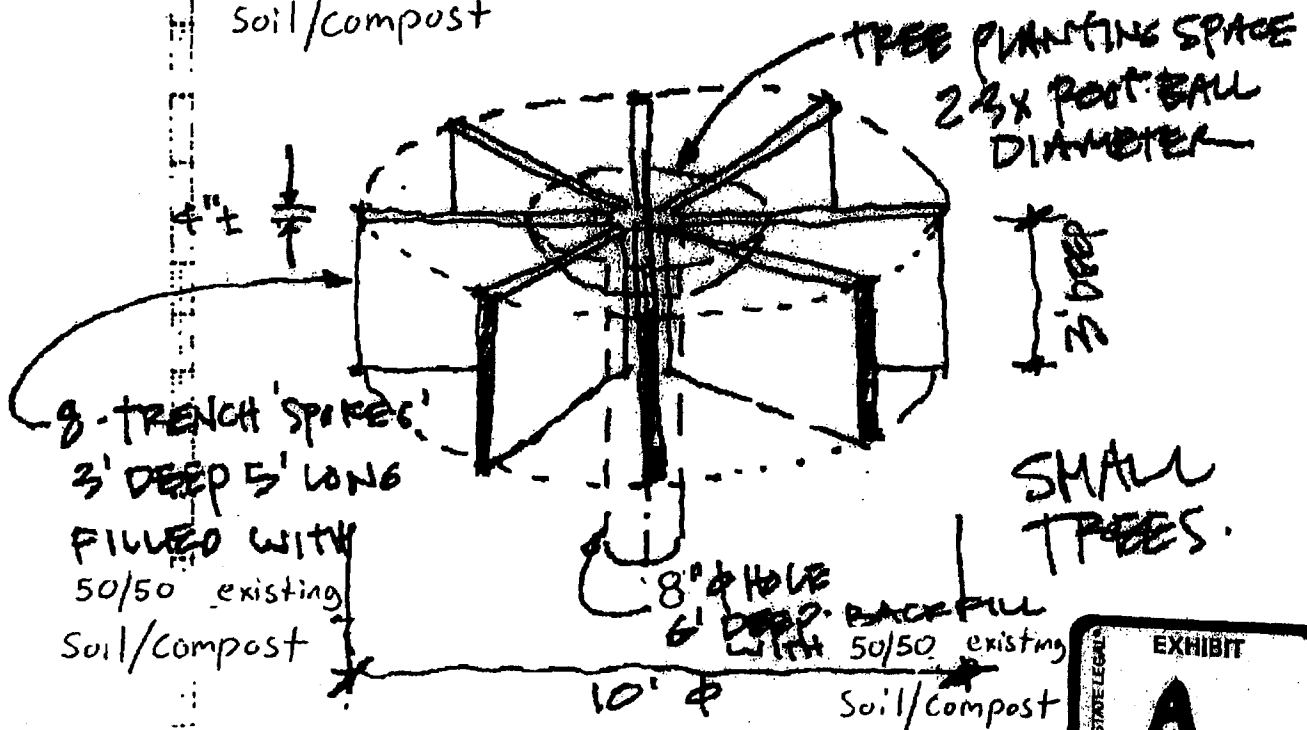 Soil/compost
TREE PLANTING SPACE
2-3x ROOT BALL
DIAMETER
4"±
3' DEEP
8-TRENCH 'SPOKES'
3' DEEP 5' LONG
FILLED WITH
50/50 existing
Soil/compost
SMALL
TREES.
8"ϕ HOLE
6' DEEP. BACKFILL
WITH 50/50 existing
Soil/compost
10' ϕ
EXHIBIT
A
STATE LEGAL